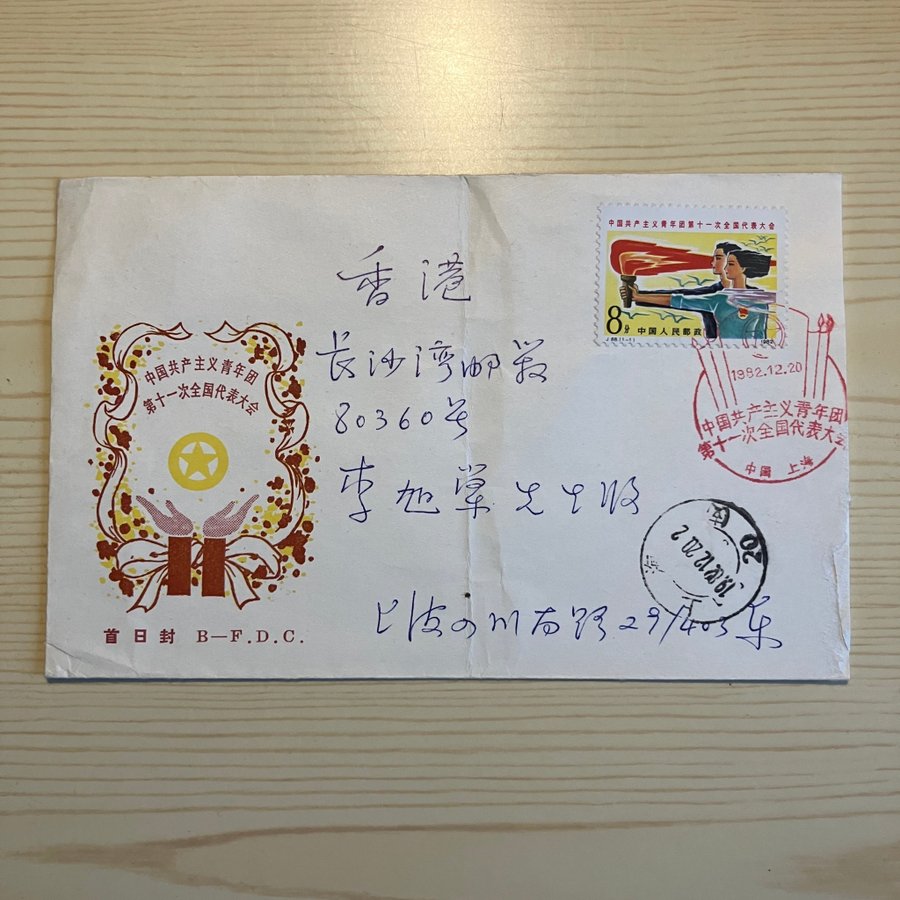 中国共产主义青年团
第十一次全国代表大会
首日封 B—F.D.C.
中国共产主义青年团第十一次全国代表大会
8分 中国人民邮政
J.88.(1-1) 1982
1982.12.20
中国共产主义青年团
第十一次全国代表大会
中国 上海
香港
长沙湾邮箱
80360号
李旭 先生收
上 四川南路29/403 
上海
1982.12.20.2
20